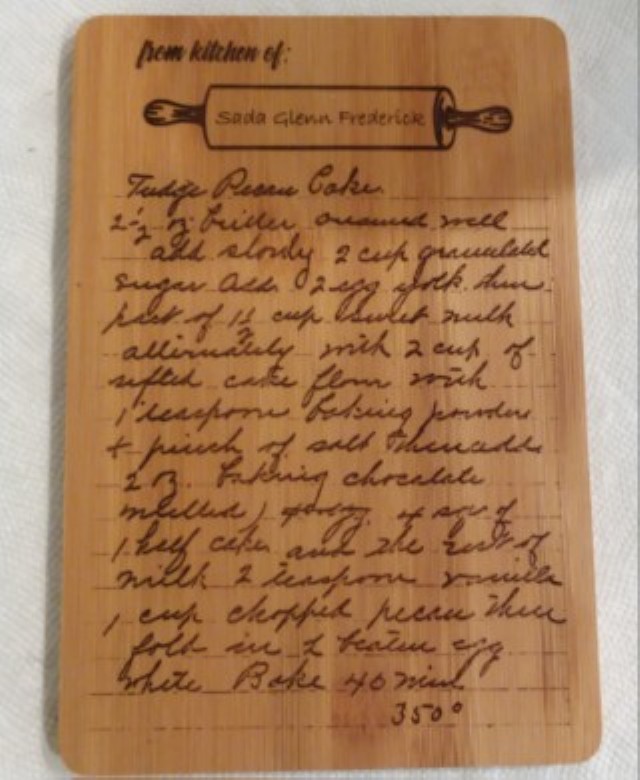 from kitchen of:
Sada Glenn Frederick
Fudge Pecan Cake
2½ oz butter creamed well
add slowly 2 cup granulated
sugar Add 2 egg yolk then
part of 1½ cup sweet milk
alternately with 2 cup of
sifted cake flour with
1 teaspoon baking powder
+ pinch of salt then add
2 oz. baking chocolate
melted) 4 of
1 half cake and the rest of
milk 2 teaspoon vanilla
1 cup chopped pecan then
fold in 2 beaten egg
white Bake 40 min
350°